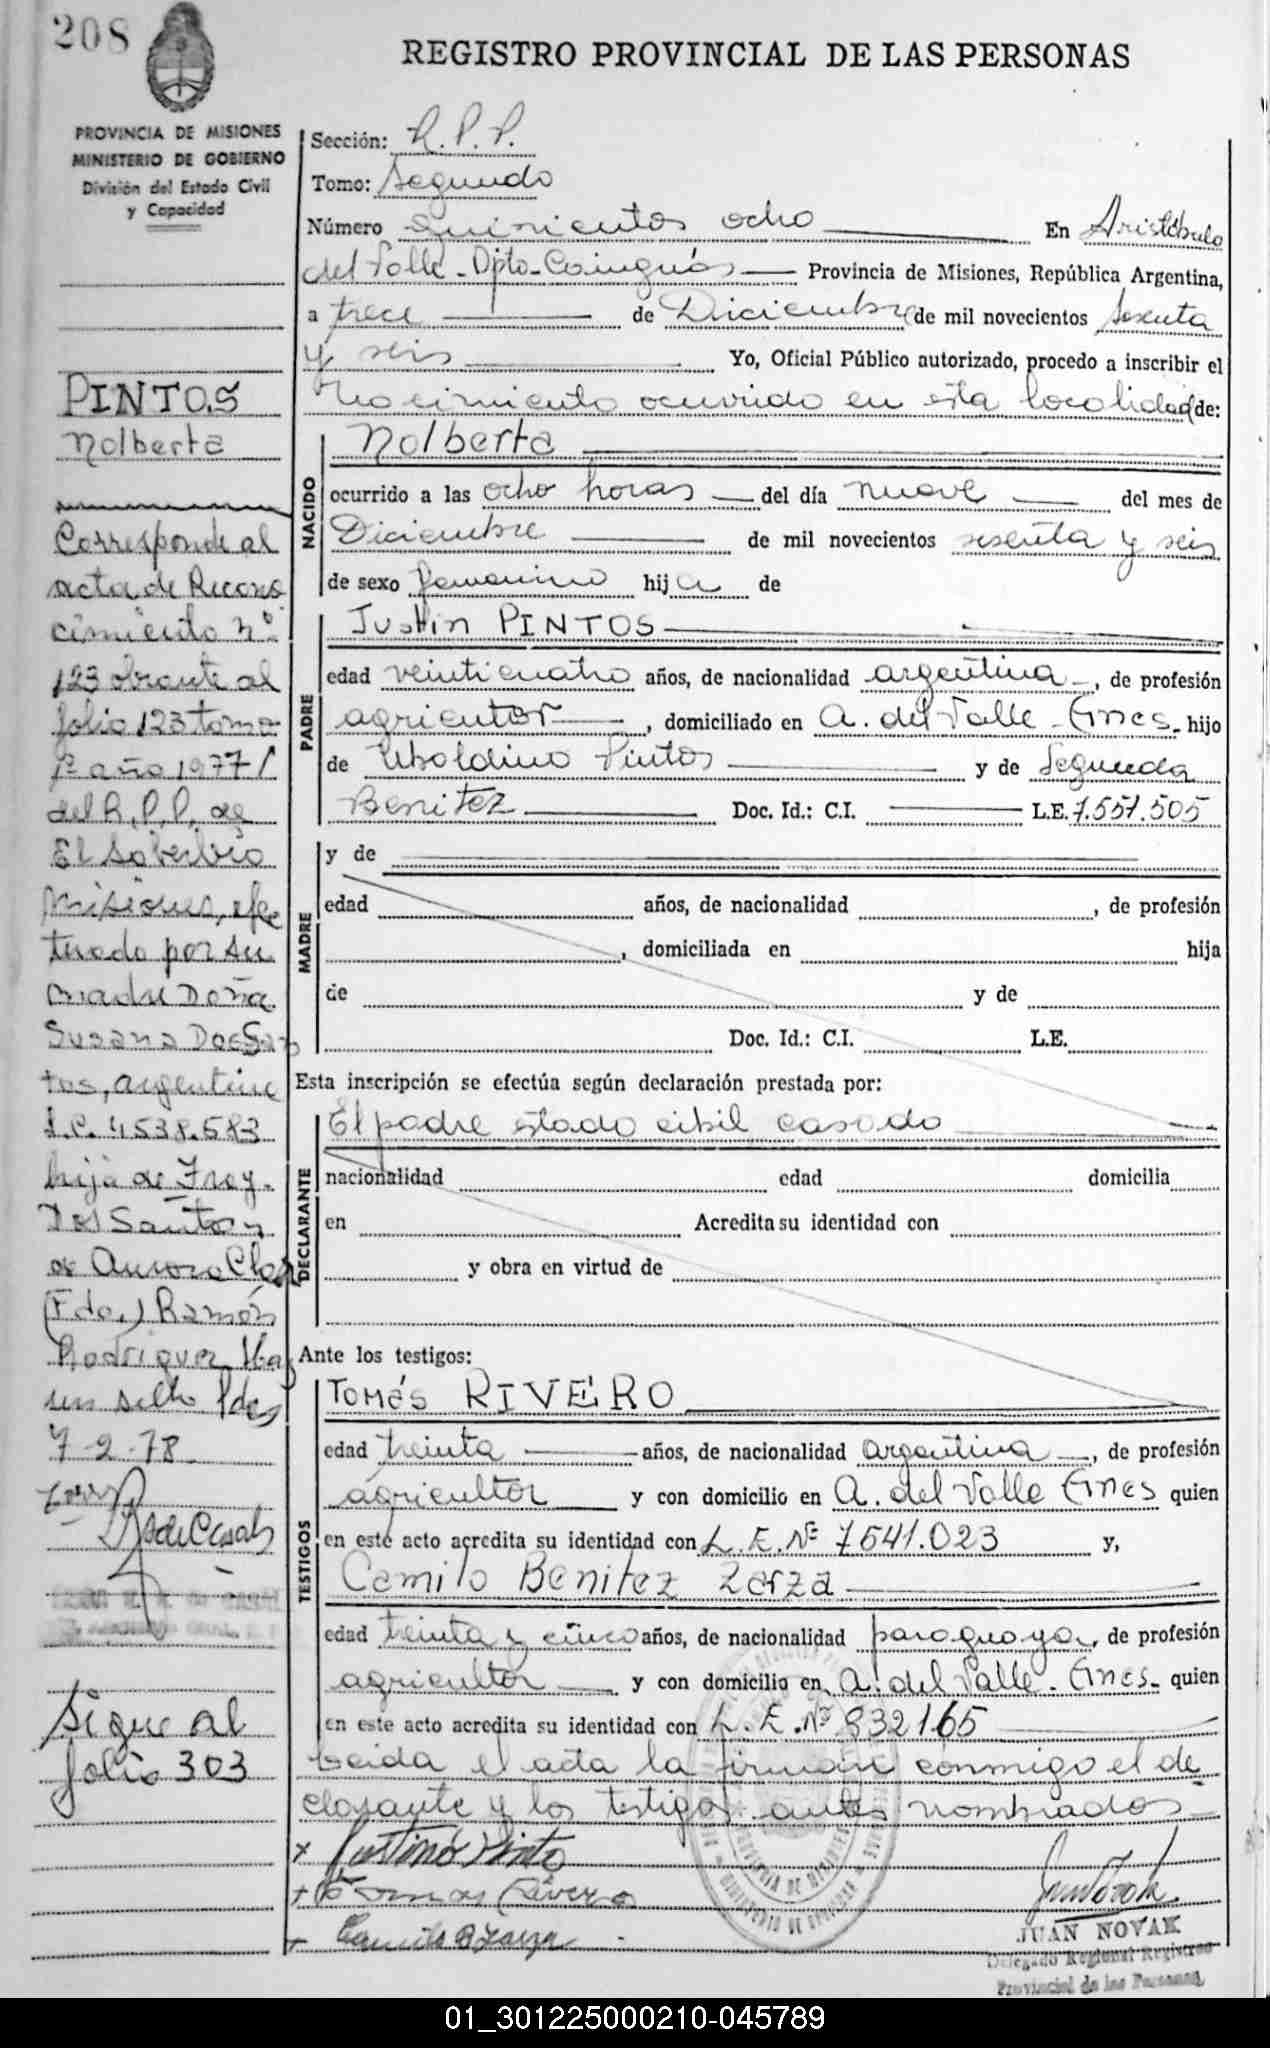 208
REGISTRO PROVINCIAL DE LAS PERSONAS
PROVINCIA DE MISIONES
MINISTERIO DE GOBIERNO
División del Estado Civil
y Capacidad
PINTOS
Nolberta
Corresponde al
acta de Recono
cimiento nº
123 obrante al
folio 123 tomo
1º año 1977/
del R.P.P. de
El Soberbio
Misiones, efec
tuado por su
madre Doña
Susana Dos San
tos, argentina
4538.583
hija de
Dos Santos y
de Aurora
(Fdo.) Ramón
Rodriguez
un sello
7-2-78
Sigue al
folio 303
Sección: R.P.P.
Tomo: Segundo
Número quinientos ocho En Aristóbulo
del Valle - Dpto - Cainguás Provincia de Misiones, República Argentina,
a trece de Diciembre de mil novecientos sesenta
y seis Yo, Oficial Público autorizado, procedo a inscribir el
Nacimiento ocurrido en esta localidad de:
NACIDO
Nolberta
ocurrido a las ocho horas del día nueve del mes de
Diciembre de mil novecientos sesenta y seis
de sexo femenino hija de
PADRE
Justin PINTOS
edad veinticuatro años, de nacionalidad argentina, de profesión
agricutor, domiciliado en A. del Valle - Cnes. hijo
de Ubaldino Pintos y de Segunda
Benitez Doc. Id.: C.I. L.E. 7.557.505
MADRE
y de
edad años, de nacionalidad , de profesión
, domiciliada en hija
de y de
Doc. Id.: C.I. L.E.
Esta inscripción se efectúa según declaración prestada por:
DECLARANTE
El padre estado cibil casado
nacionalidad edad domicilia
en Acredita su identidad con
y obra en virtud de
Ante los testigos:
TESTIGOS
Tomás RIVERO
edad treinta años, de nacionalidad argentina, de profesión
agricultor y con domicilio en A. del Valle Cnes quien
en este acto acredita su identidad con L.E. Nº 7541.023 y,
Camilo Benitez Zarza
edad treinta y cinco años, de nacionalidad paraguaya, de profesión
agricultor y con domicilio en A. del Valle - Cnes. quien
en este acto acredita su identidad con L.E. Nº 832165
Leida el acta la firman conmigo el de
clarante y los testigos antes nombrados
x Justino Pinto
+ Tomas Rivero
+ Camilo B Zarza
JUAN NOVAK
Delegado Regional Registro
Provincial de las Personas
01_301225000210-045789